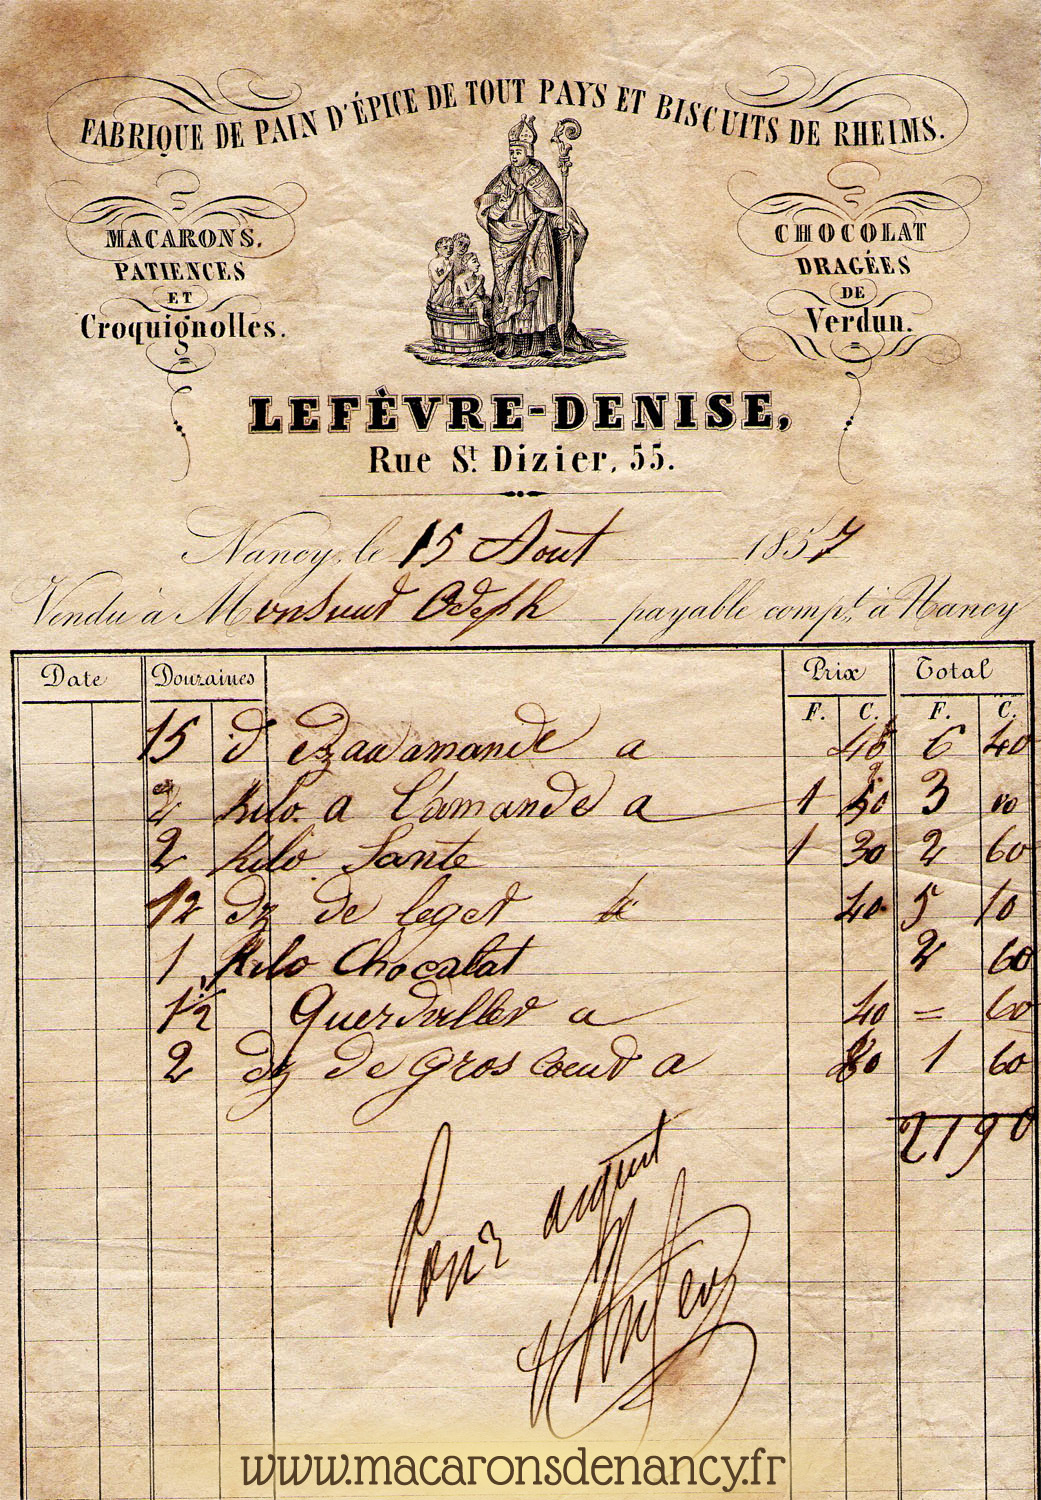 FABRIQUE DE PAIN D'ÉPICE DE TOUT PAYS ET BISCUITS DE RHEIMS.
MACARONS.
PATIENCES
ET
Croquignolles.
CHOCOLAT
DRAGÉES
DE
Verdun.
LEFÈVRE-DENISE,
Rue St. Dizier, 55.
Nancy, le 15 Aout 1857
Vendu à Monsieur payable compt. à Nancy
Date Douzaines Prix Total
F. C. F. C.
15 d amande a 6 40
2 Kilo a l'amande a 1 50 3 00
2 Kilo Sante 1 30 2 60
12 dz de 40 5 10
1 Kilo Chocalat 2 60
a 40 = 60
2 dz de gros coeur a 80 1 60
21 90
Pour
www.macaronsdenancy.fr